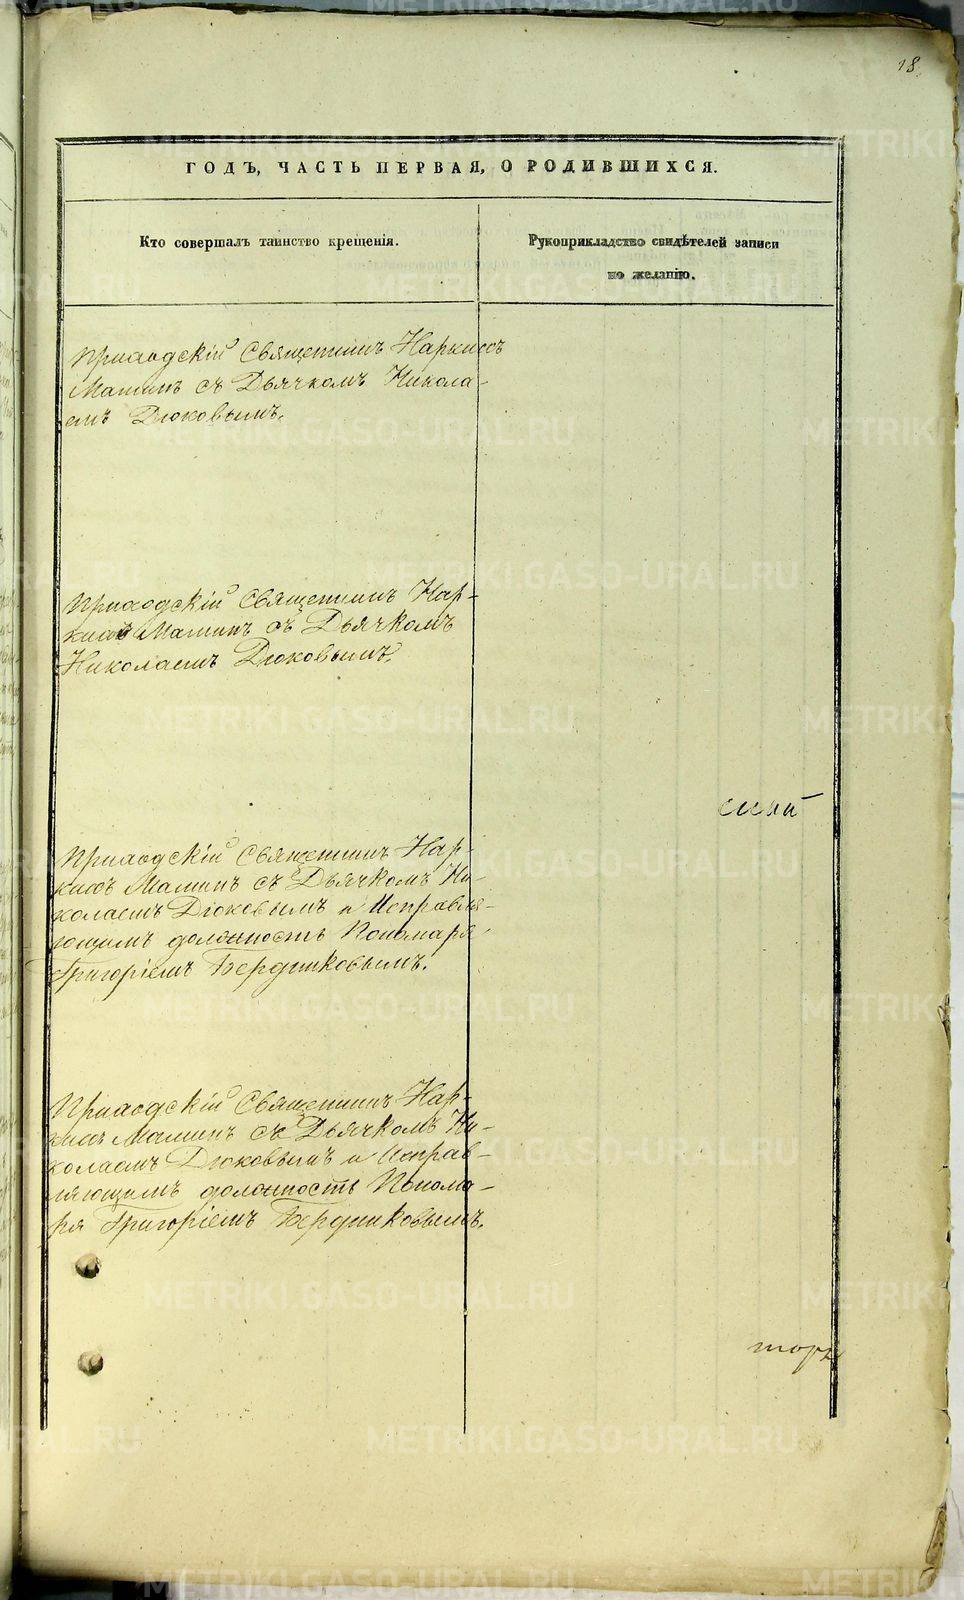 18.
ГОДЪ, ЧАСТЬ ПЕРВАЯ, О РОДИВШИХСЯ.
Кто совершалъ таинство крещенія.
Рукоприкладство свидѣтелей записи
по желанію.
Приходскій Священникъ Наркиссъ
Маминъ съ Дьячкомъ Никола-
емъ Дюковымъ.
Приходскій Священникъ Нар-
кисъ Маминъ съ Дьячкомъ
Николаемъ Дюковымъ.
сный
Приходскій Священникъ Нар-
кисъ Маминъ съ Дьячкомъ Ни-
колаемъ Дюковымъ и Исправля-
ющимъ должность Пономаря
Григоріемъ Бердниковымъ.
Приходскій Священникъ Нар-
кисъ Маминъ съ Дьячкомъ Ни-
колаемъ Дюковымъ и Исправ-
ляющимъ должность Понома-
ря Григоріемъ Бердниковымъ.
METRIKI.GASO-URAL.RU